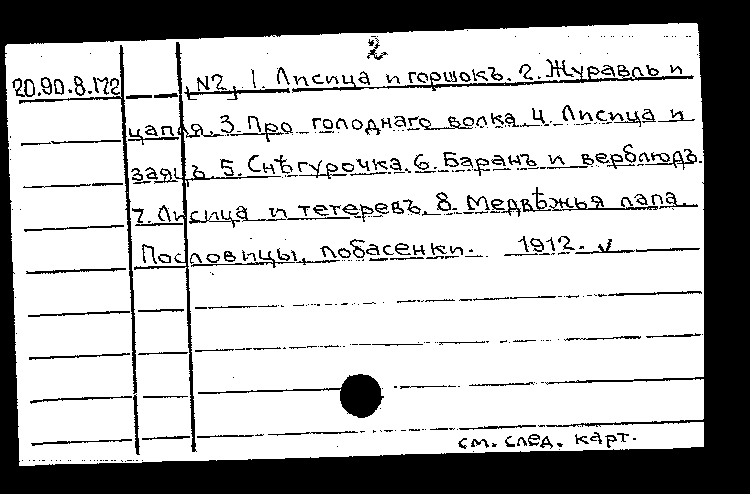 2
20.90.8.172 [N2] 1. Лисица и горшокъ. 2. Журавль и
цапля. 3. Про голоднаго волка. 4. Лисица и
заяцъ. 5. Снѣгурочка. 6. Баранъ и верблюдъ.
7. Лисица и тетеревъ. 8. Медвѣжья лапа.
Пословицы, побасенки. 1912. v
см. след. карт.